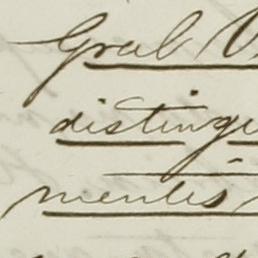 Gral V
disting
mentes